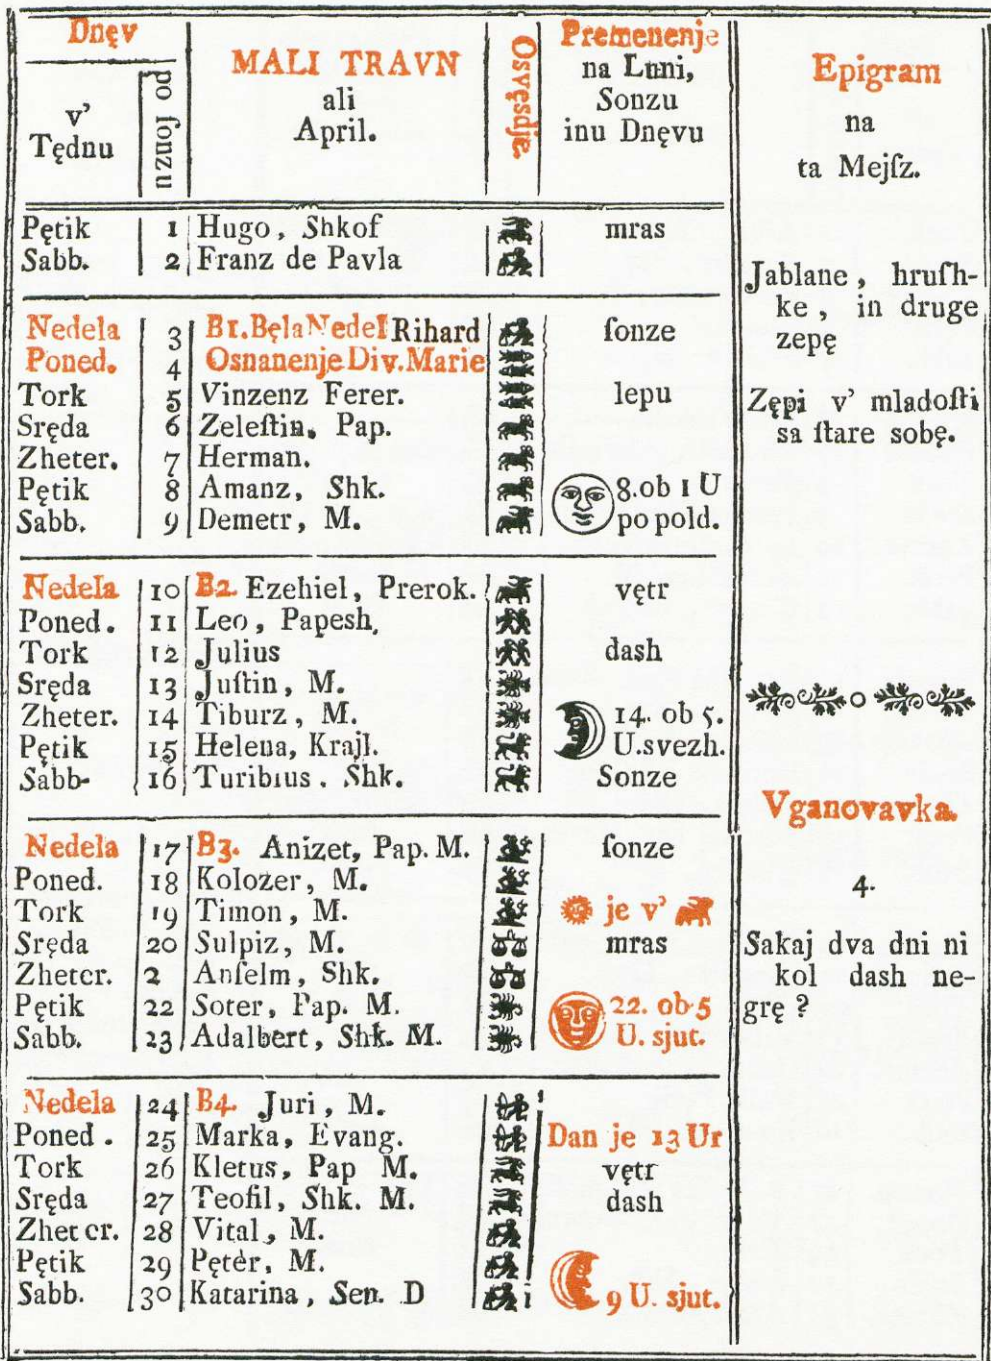 Dnęv
v’
Tędnu
po ſonzu
MALI TRAVN
ali
April.
Osvęsdje.
Premenenje
na Luni,
Sonzu
inu Dnęvu
Epigram
na
ta Mejſz.
Pętik 1 Hugo, Shkof mras
Sabb. 2 Franz de Pavla
Nedela 3 B1. Bęla Nedel Rihard ſonze
Poned. 4 Osnanenje Div. Marie
Tork 5 Vinzenz Ferer. lepu
Sręda 6 Zeleſtin, Pap.
Zheter. 7 Herman.
Pętik 8 Amanz, Shk. 8. ob 1 U
Sabb. 9 Demetr, M. po pold.
Nedela 10 B2. Ezehiel, Prerok. vętr
Poned. 11 Leo, Papesh.
Tork 12 Julius dash
Sręda 13 Juſtin, M.
Zheter. 14 Tiburz, M. 14. ob 5.
Pętik 15 Helena, Krajl. U. svezh.
Sabb- 16 Turibius. Shk. Sonze
Nedela 17 B3. Anizet, Pap. M. ſonze
Poned. 18 Kolozer, M.
Tork 19 Timon, M. je v’
Sręda 20 Sulpiz, M. mras
Zheter. 2 Anſelm, Shk.
Pętik 22 Soter, Pap. M. 22. ob 5
Sabb. 23 Adalbert, Shk. M. U. sjut.
Nedela 24 B4. Juri, M.
Poned. 25 Marka, Evang. Dan je 13 Ur
Tork 26 Kletus, Pap M. vętr
Sręda 27 Teofil, Shk. M. dash
Zheter. 28 Vital, M.
Pętik 29 Pętėr, M.
Sabb. 30 Katarina, Sen. D 9 U. sjut.
Jablane, hruſh-
ke, in druge
zepę
Zępi v’ mladoſti
sa ſtare sobę.
Vganovavka.
4.
Sakaj dva dni ni
kol dash ne-
grę?